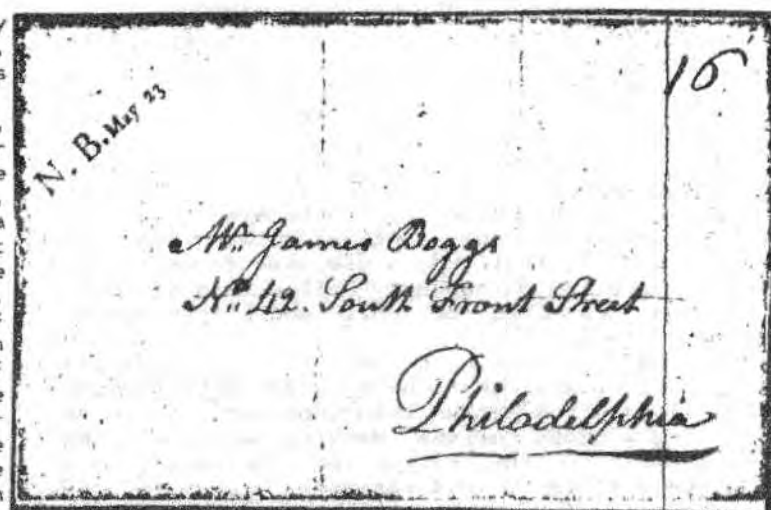 N. B. May 23
16
Mr. James Boggs
No. 42. South Front Street
Philadelphia